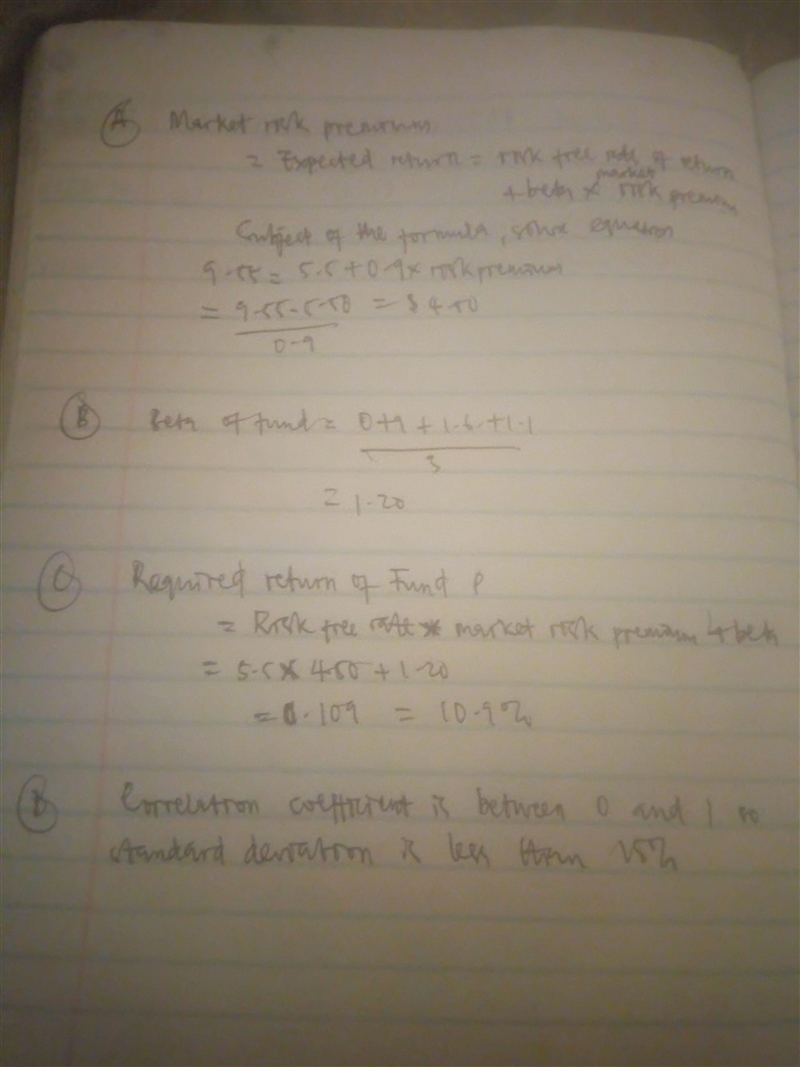 A Market risk premium
= Expected return = risk free rate of return
+ beta × market risk premium
Subject of the formula, solve equation
9.55 = 5.5 + 0.9 × risk premium
= 9.55 - 5.50 = $4.50
0.9
B Beta of fund = 0.9 + 1.6 + 1.1
3
= 1.20
C Required return of Fund P
= Risk free rate * market risk premium + beta
= 5.5 × 4.50 + 1.20
= 0.109 = 10.9%
D Correlation coefficient is between 0 and 1 so
standard deviation is less than 25%